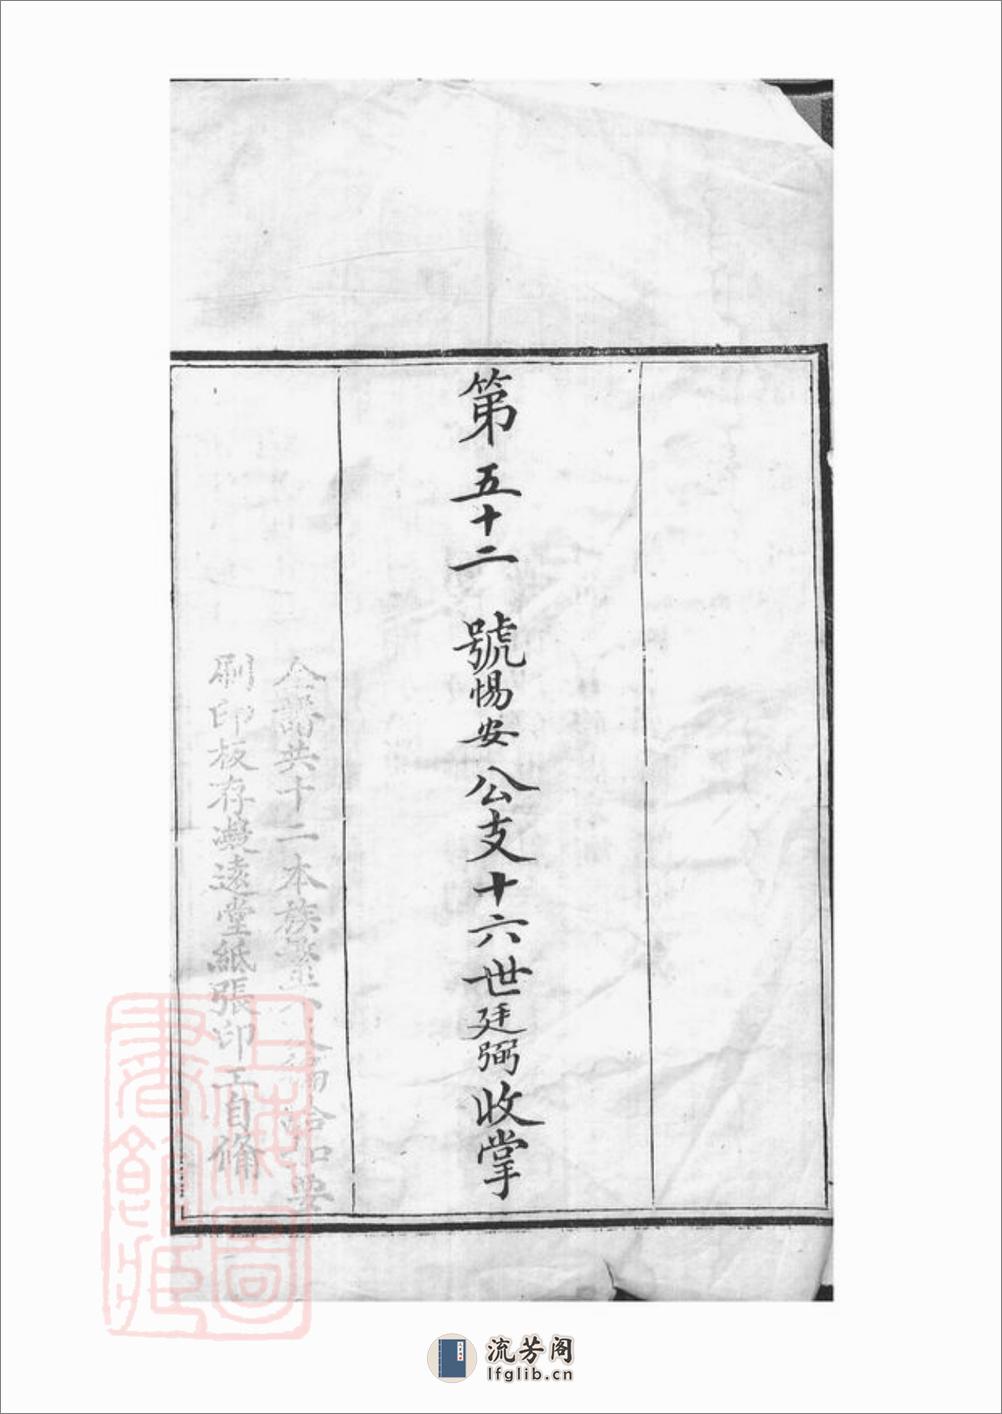 第五十二號惕安公支十六世廷弼收掌
全譜共十二本族繁不 徧給如要
刷印板存 遠堂紙張印工自備
上海圖書館藏
流芳阁
lfglib.cn